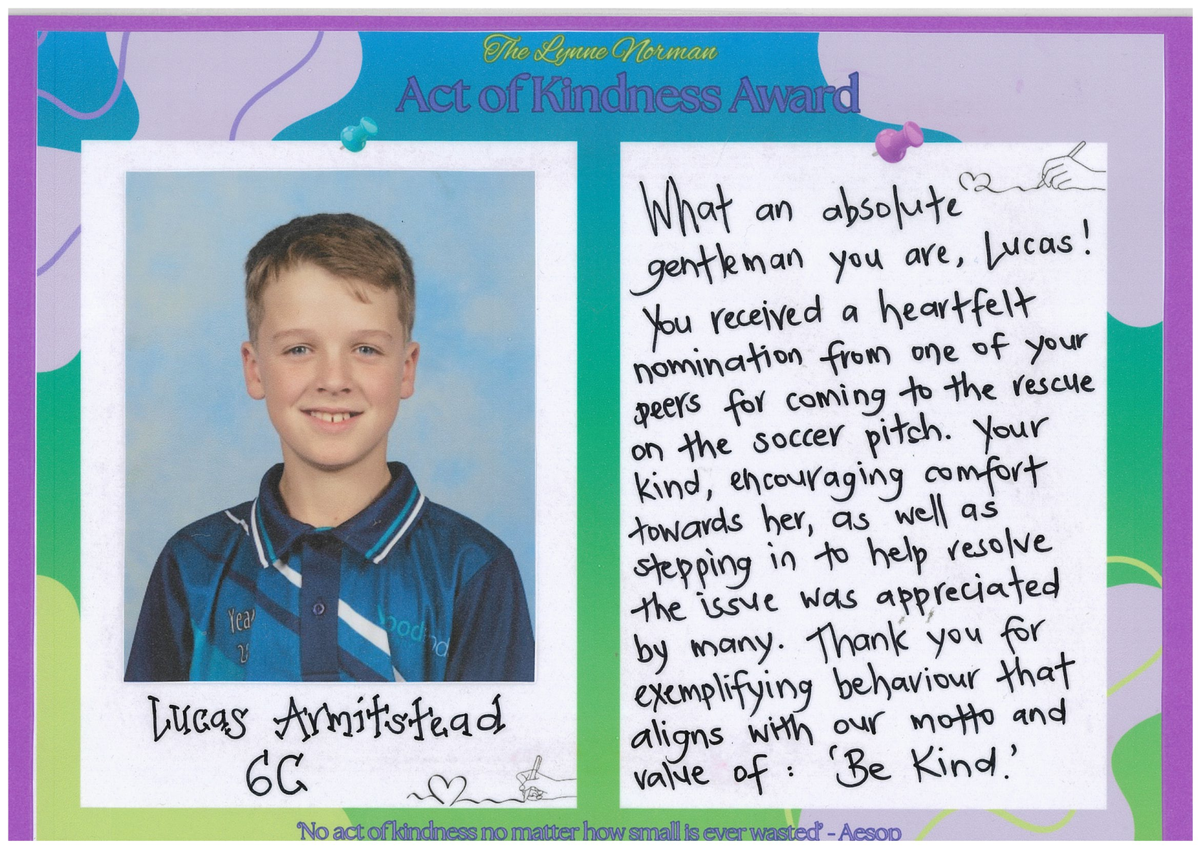 The Lynne Norman
Act of Kindness Award
What an absolute
gentleman you are, Lucas!
You received a heartfelt
nomination from one of your
peers for coming to the rescue
on the soccer pitch. Your
kind, encouraging comfort
towards her, as well as
stepping in to help resolve
the issue was appreciated
by many. Thank you for
exemplifying behaviour that
aligns with our motto and
value of: 'Be Kind.'
Yea
Lucas Armitstead
6C
'No act of kindness no matter how small is ever wasted' - Aesop